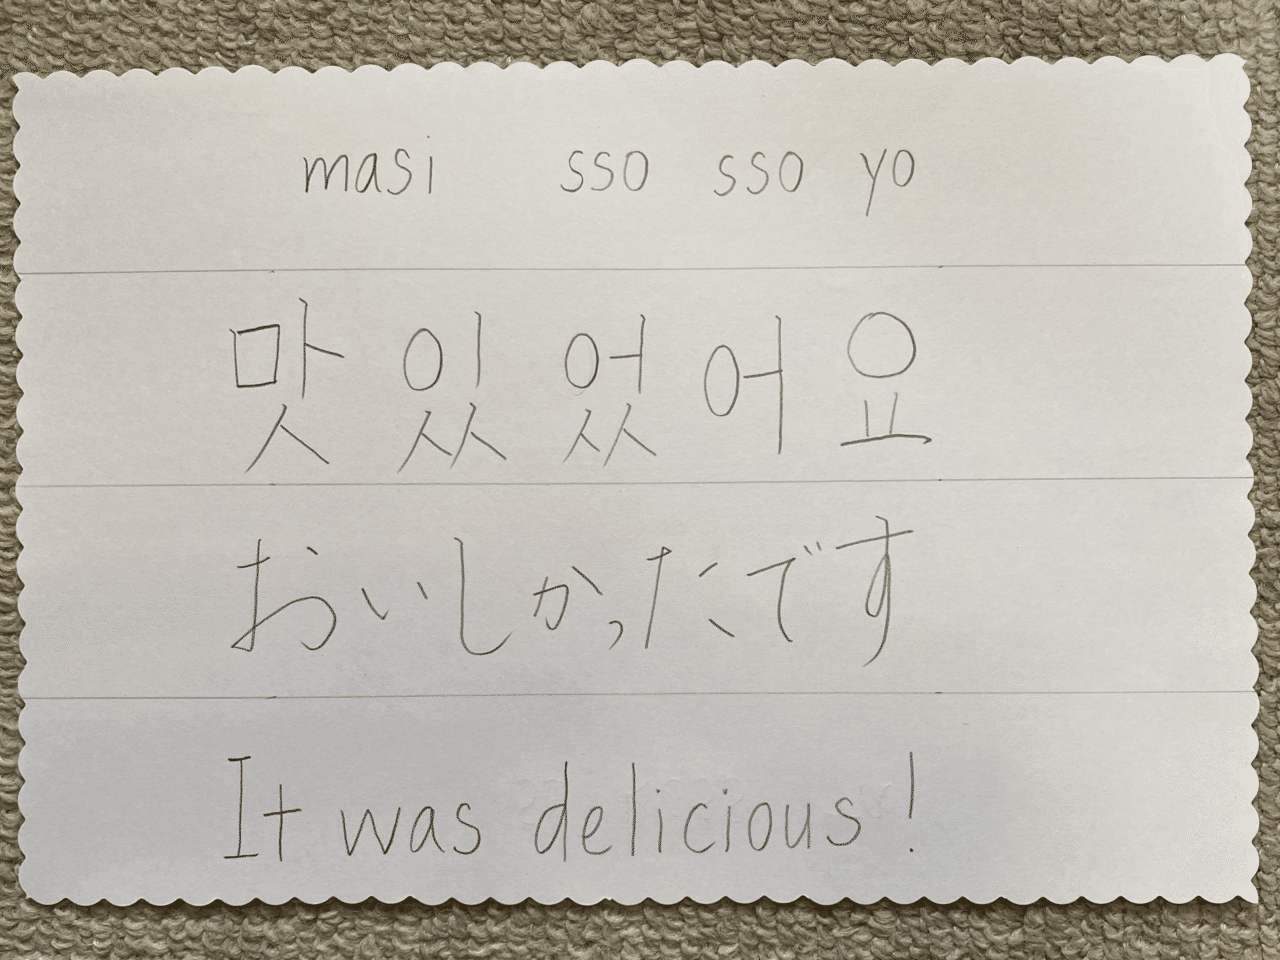 masi sso sso yo
맛있었어요
おいしかったです
It was delicious!